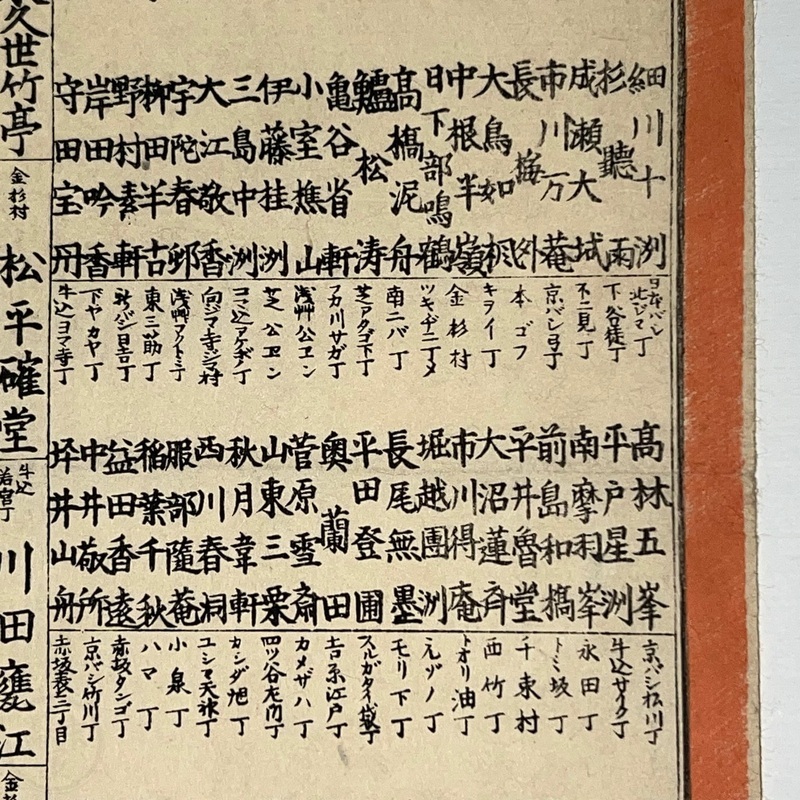 細川十洲 日本バシ北ジマ丁
杉聽雨 下谷徒丁
成瀬大域 不二見丁
市川万菴 京バシ弓丁
長梅外 本ゴフ
大鳥如楓 キライ丁
中根半嶺 金杉村
日下部鳴鶴 ツキヂ二丁メ
高橋泥舟 南二バ丁
鱸松涛 芝アタゴ下丁
亀谷省軒 フカ川サガ丁
小室樵山 浅艸公エン
伊藤桂洲 芝公エン
三島中洲 コマ込アケボノ丁
大江敬香 向ジマ寺ジマ村
宇陀春邨 浅艸フクトミ丁
柳田羊古 東三筋丁
野村素軒 新バシ日吉丁
岸田吟香 下ヤカヤ丁
守田宝丹 牛込ヨコ寺丁
高林五峯 京バシ松川丁
平戸星洲 牛込サイク丁
南摩利峯 永田丁
前島和橋 トミ坂丁
平井魯堂 千束村
大沼蓮斉 西竹丁
市川得庵 トオリ油丁
堀越團洲 元ゾノ丁
長尾無墨 モリ下丁
平田登圃 スルガタイ袋丁
奥蘭田 吉原江戸丁
菅原雪斎 カメザハ丁
山東三栗 四ツ谷左門丁
秋月韋軒 カンダ旭丁
西川春洞 ユシマ天神丁
服部隨菴 小泉丁
稲葉千秋 ハマ丁
益田香遠 赤坂タンゴ丁
中井敬所 京バシ竹川丁
坪井山舟 赤坂表三丁目
久世竹亭
金杉村
松平確堂
牛込若宮丁
川田甕江